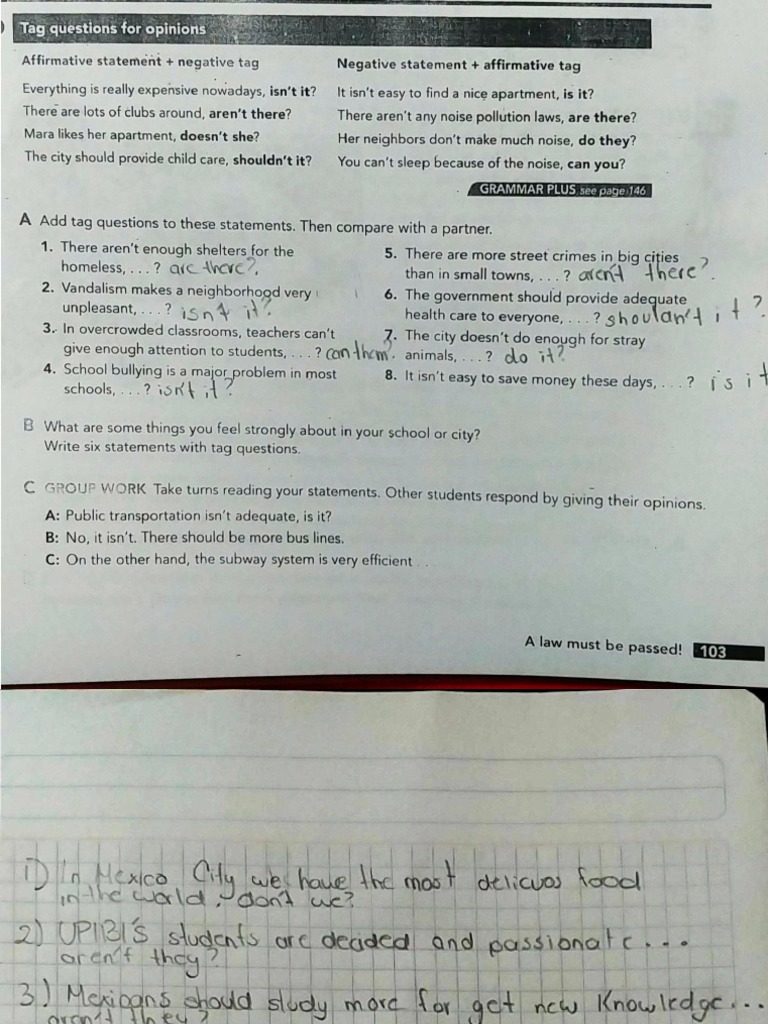 Tag questions for opinions
Affirmative statement + negative tag
Everything is really expensive nowadays, isn't it?
There are lots of clubs around, aren't there?
Mara likes her apartment, doesn't she?
The city should provide child care, shouldn't it?
Negative statement + affirmative tag
It isn't easy to find a nice apartment, is it?
There aren't any noise pollution laws, are there?
Her neighbors don't make much noise, do they?
You can't sleep because of the noise, can you?
GRAMMAR PLUS see page 146
A Add tag questions to these statements. Then compare with a partner.
1. There aren't enough shelters for the
homeless, . . . ? are there?
2. Vandalism makes a neighborhood very
unpleasant, . . . ? isn't it?
3. In overcrowded classrooms, teachers can't
give enough attention to students, . . . ? can them?
4. School bullying is a major problem in most
schools, . . . ? isn't it?
5. There are more street crimes in big cities
than in small towns, . . . ? aren't there?
6. The government should provide adequate
health care to everyone, . . . ? shouldn't it?
7. The city doesn't do enough for stray
animals, . . . ? do it?
8. It isn't easy to save money these days, . . . ? is it
B What are some things you feel strongly about in your school or city?
Write six statements with tag questions.
C GROUP WORK Take turns reading your statements. Other students respond by giving their opinions.
A: Public transportation isn't adequate, is it?
B: No, it isn't. There should be more bus lines.
C: On the other hand, the subway system is very efficient . . .
A law must be passed! 103
1) In Mexico City we have the most delicuos food
in the world, don't we?
2) UPIBI'S students are decided and passionate...
aren't they?
3) Mexicans should study more for get new Knowledge...
aren't they?